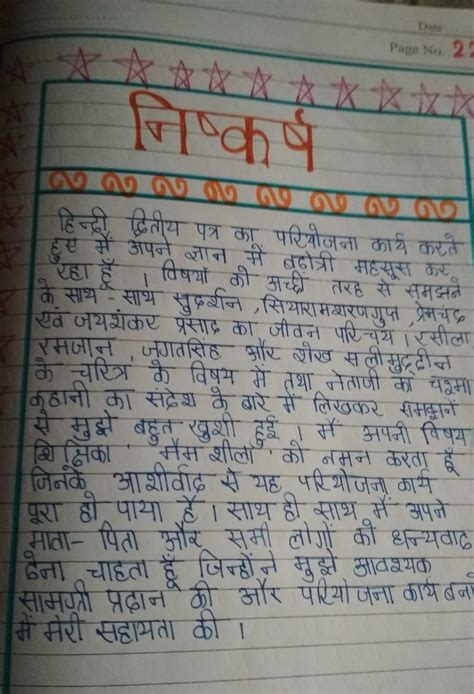 Date
Page No. 22
निष्कर्ष
हिन्दी द्वितीय पत्र का परियोजना कार्य करते
हुए मैं अपने ज्ञान में बढ़ोत्री महसूस कर
रहा हूँ । विषयों को अच्छी तरह से समझने
के साथ - साथ सुदर्शन , सियारामशरणगुप्त , प्रेमचंद
एवं जयशंकर प्रसाद का जीवन परिचय । रसीला
रमजान , जगतसिंह और शेख सलीमुद्दीन
के चरित्र के विषय में तथा नेताजी का चश्मा
कहानी का संदेश के बारे में लिखकर समझने
से मुझे बहुत खुशी हुई । मैं अपनी विषय
शिक्षिका ' मैम शीला ' को नमन करता हूँ
जिनके आशीर्वाद से यह परियोजना कार्य
पूरा हो पाया है । साथ ही साथ मैं अपने
माता - पिता और सभी लोगों को धन्यवाद
देना चाहता हूँ जिन्होंने मुझे आवश्यक
सामग्री प्रदान की और परियोजना कार्य बना
में मेरी सहायता की ।